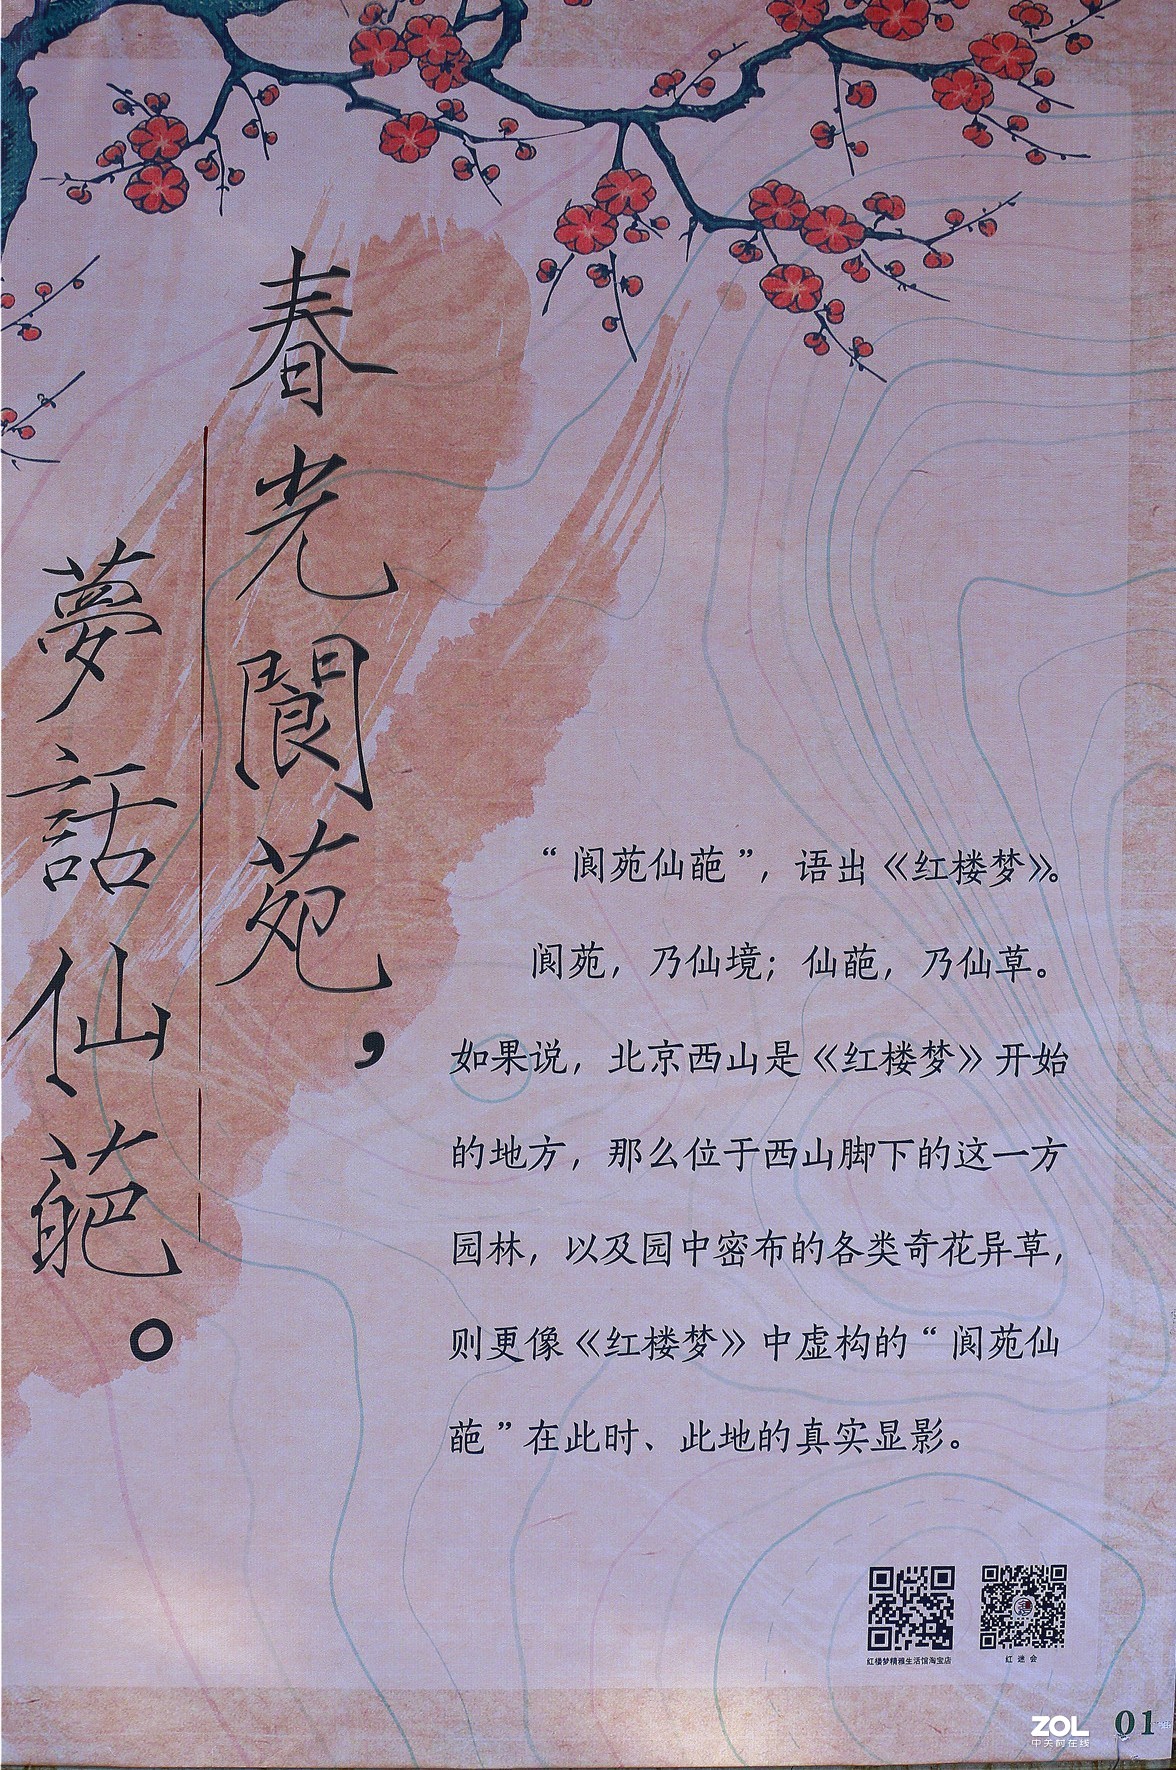 春光閬苑，
夢話仙葩。
“阆苑仙葩”，语出《红楼梦》。
阆苑，乃仙境；仙葩，乃仙草。
如果说，北京西山是《红楼梦》开始
的地方，那么位于西山脚下的这一方
园林，以及园中密布的各类奇花异草，
则更像《红楼梦》中虚构的“阆苑仙
葩”在此时、此地的真实显影。
红楼梦精雅生活馆淘宝店
红迷会
ZOL
中关村在线
01